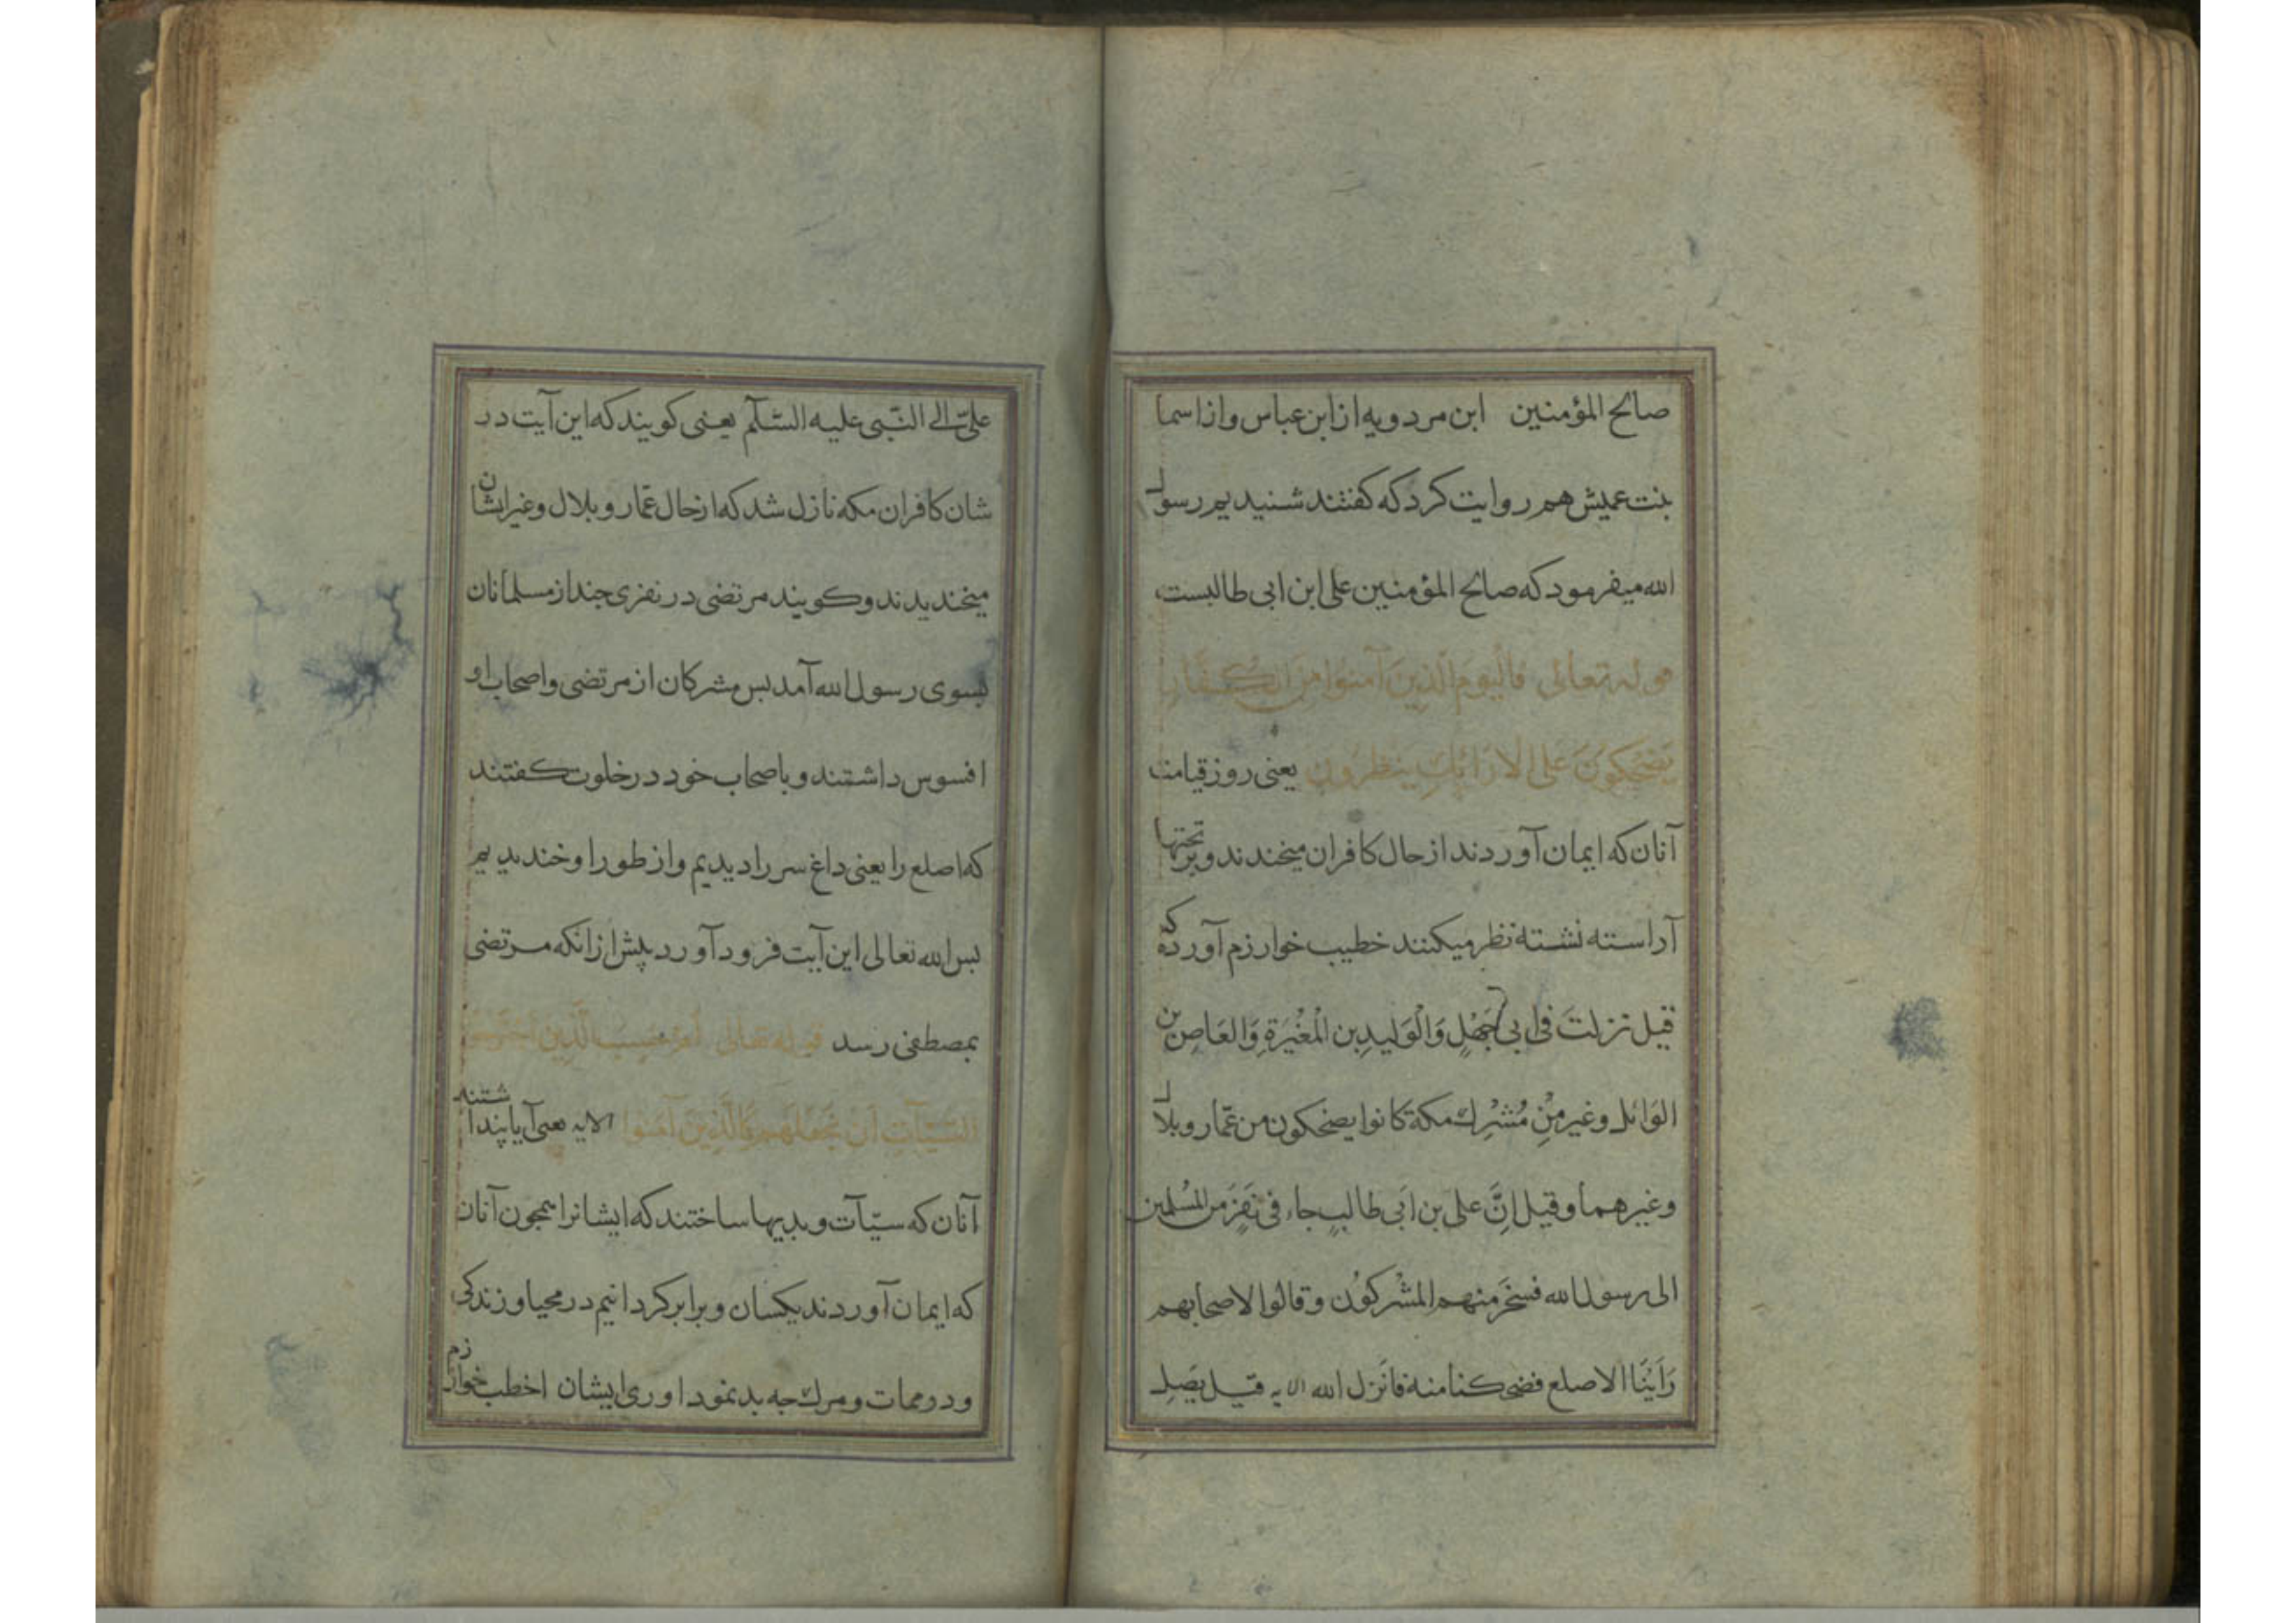 صالح المؤمنين ابن مردويه از ابن عباس و از اسما
بنت عميش هم روايت كرد كه كفتند شنيديم رسول
الله ميفرمود كه صالح المؤمنين على ابن ابى طالبست
قوله تعالى فَالْيَومَ الَّذينَ آمنُوا مِنَ الْكُفَّارِ
يَضْحَكُونَ عَلى الارَائِكِ يَنظُرُونَ يعنى روز قيامت
آنان كه ايمان آوردند از حال كافران ميخندند و بر تختها
آراسته نشسته نظر ميكنند خطيب خوارزم آورده كه
قيل نزلت فى ابى جَهْلٍ وَالْوَليدِ بن الْمُغْيَرَةِ وَالعَاصِ بن
الوَائل وغير مِنْ مُشْرِك مكة كانوا يضحكون من عمّار وبلال
وغيرهما وقيل اِنَّ على بن اَبى طالبٍ جاء فى نَفَرٍ مَن المُسلمين
الى رسول الله فسخَرَ منهم المشْركوُن وقالوا الاصحابهم
رَاَيْنَا الاصلع فضحكنا منه فانَزل الله الايه قَبل يَصِل
علىّ الى النّبى عليه السّلآم يعنى كويند كه اين آيت در
شان كافران مكه نازل شد كه از حال عمّار و بلال و غير ايشان
ميخنديدند و كويند مرتضى در نفرى جند از مسلمانان
بسوى رسول الله آمد بس مشركان از مرتضى و اصحاب او
افسوس داشتند و با صحاب خود در خلوت كفتند
كه اصلع را يعنى داغ سر را ديديم و از طور او خنديديم
بس الله تعالى اين آيت فرود آورد پيش از انكه مرتضى
بمصطفى رسد قوله تعالى اَمْ حَسِبَ الَّذينَ اجْتَرَحُوا
السّيّآتِ اَنْ نَجْعَلَهُم كَالَّذينَ آمَنُوا الايه يعنى آيا پنداشتند
آنان كه سيّآت و بديها ساختند كه ايشانرا همجون آنان
كه ايمان آوردند يكسان و برابر كردانيم در محيا و زندكى
و در ممات و مرك جه بد نمود اورى ايشان اخطب خوارزم